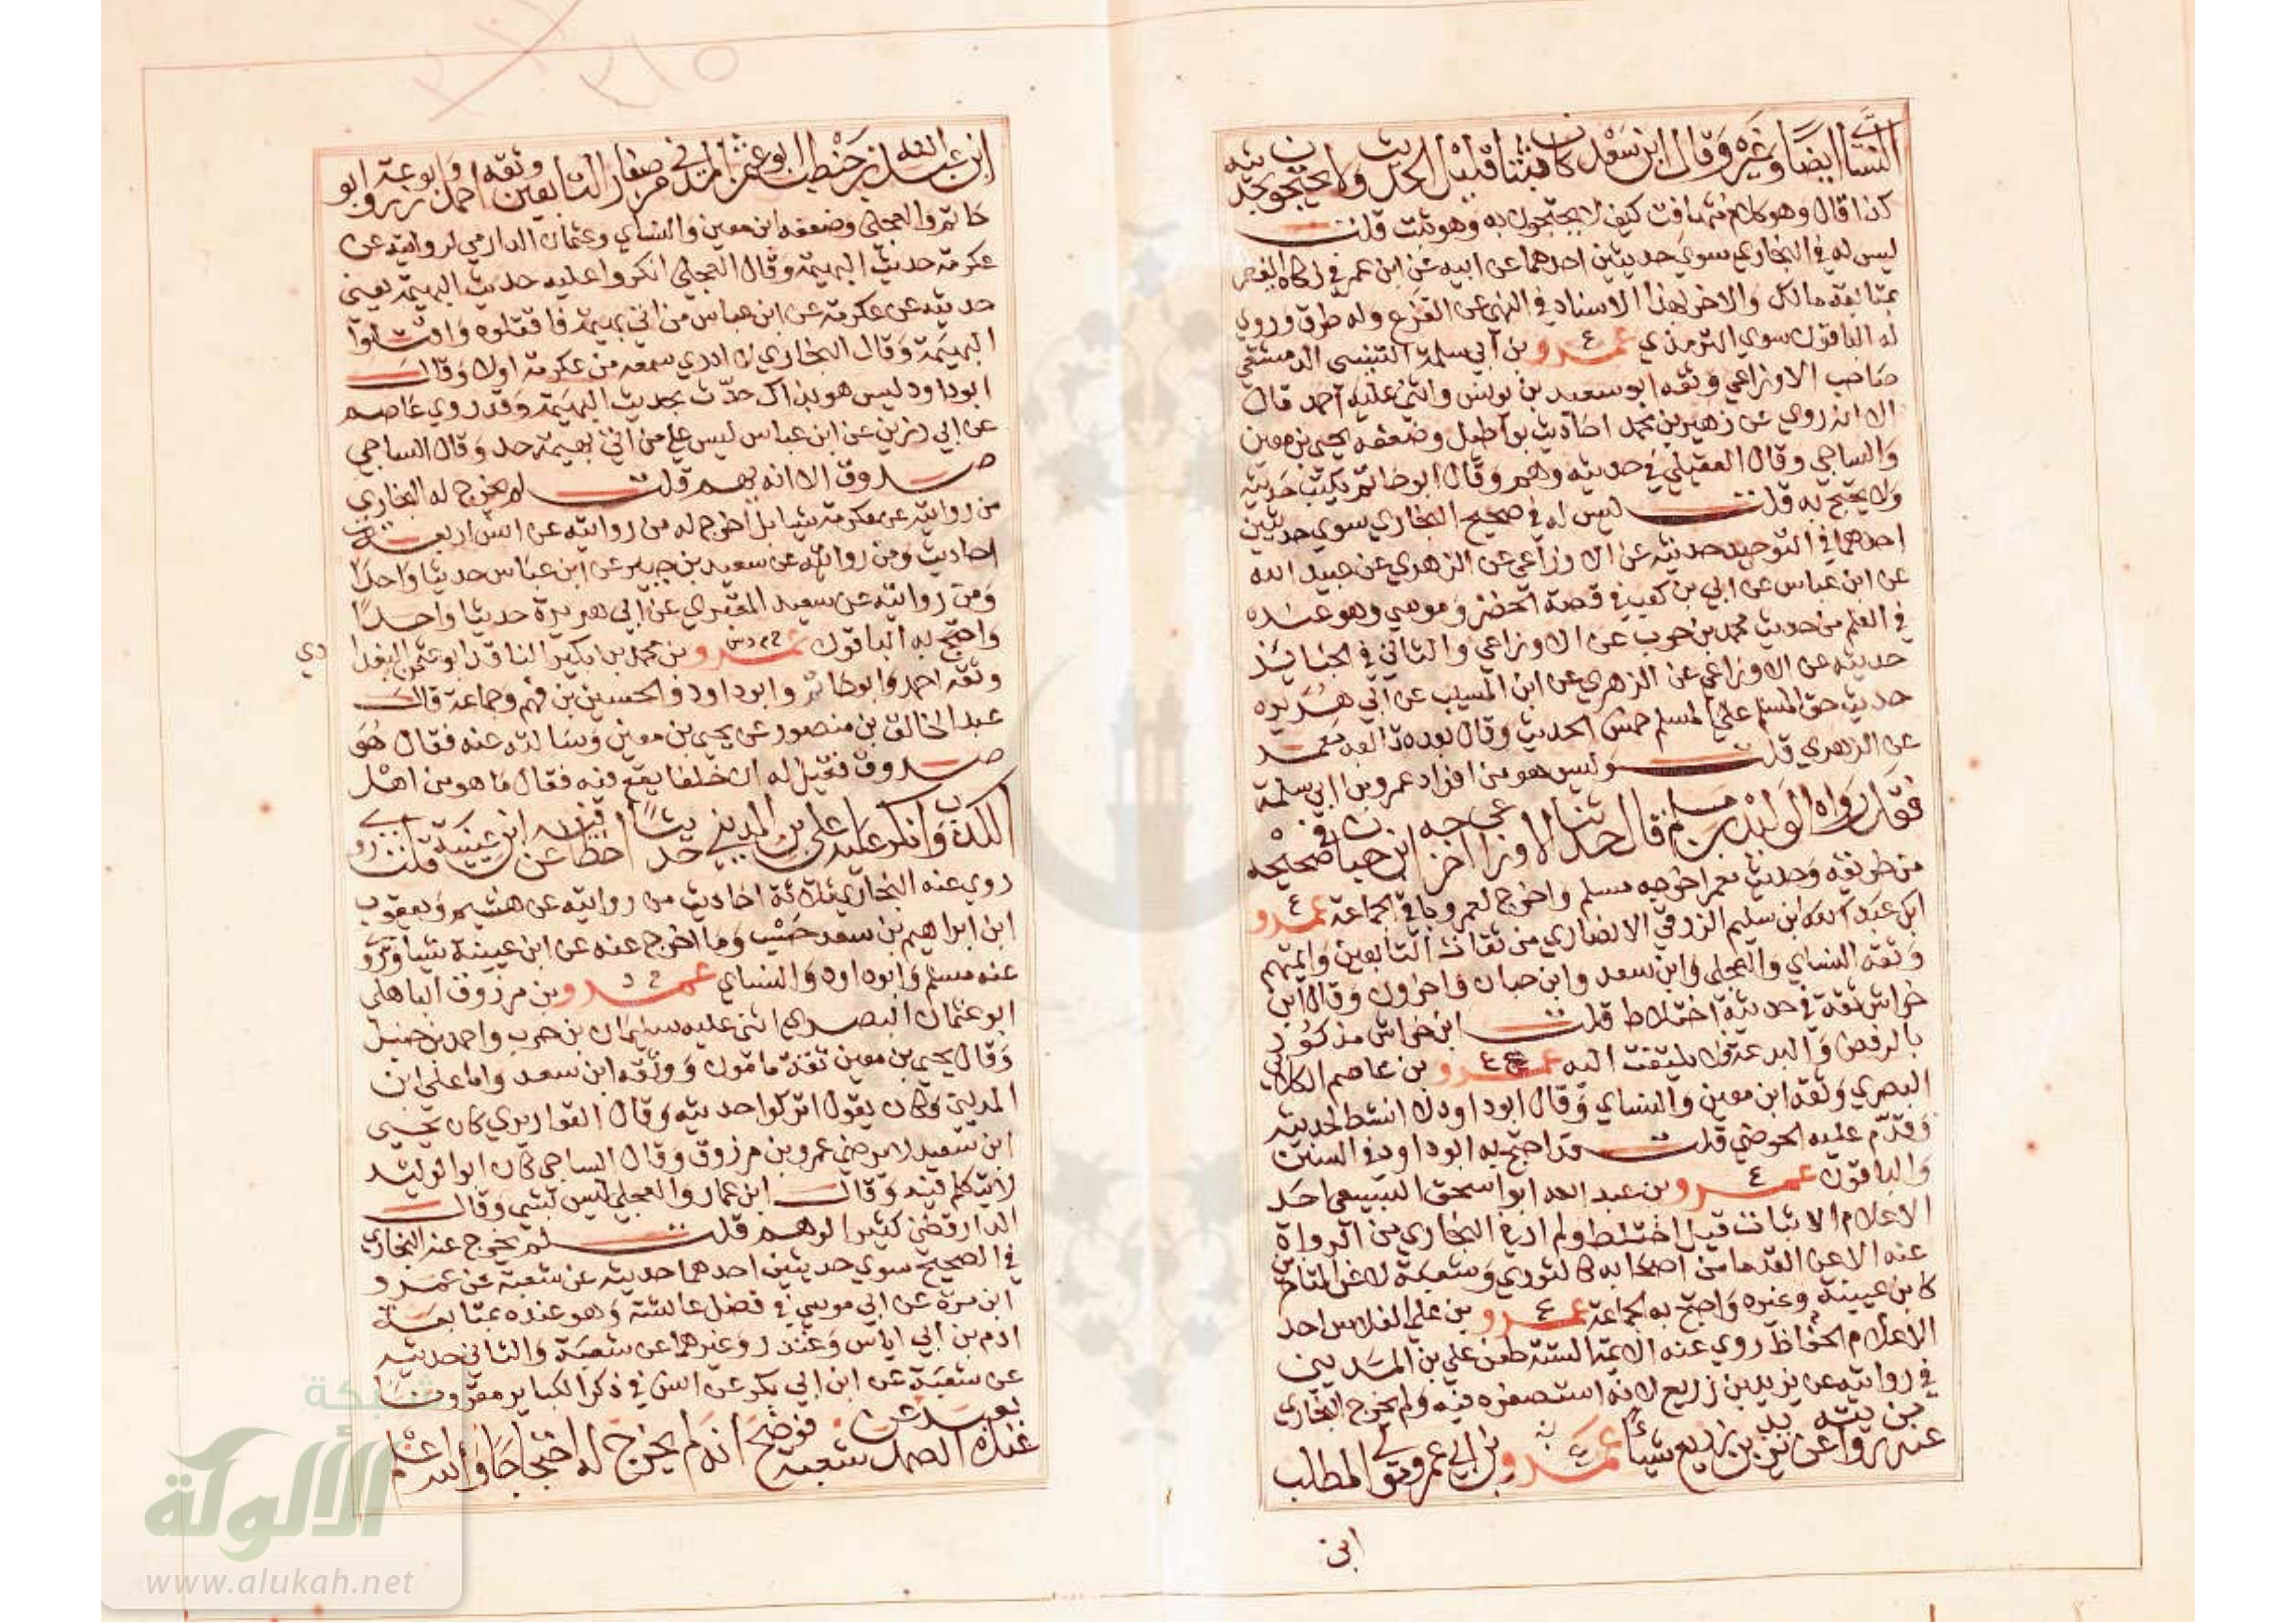 النسائي ايضا وغيره وقال ابن سعد كان ثبتا قليل الحديث ولا يحتجون بحديثه
كذا قال وهو كلام متهافت كيف لا يحتجون به وهو ثبت قلت
ليس له في البخاري سوي حديثين احدهما عن ابيه عن ابن عمر في زكاة الفطر
بمتابعة مالك والاخر بهذا الاسناد في النهي عن القزع وله طرق وروي
له الباقون سوي الترمذي عمرو بن ابي سلمة التنيسي الدمشقي
صاحب الاوزاعي وثقه ابو سعيد بن يونس واثني عليه احمد قال
الا انه روي عن زهير بن محمد احاديث بواطيل وضعفه يحيي بن معين
والساجي وقال العقيلي في حديثه وهم وقال ابو حاتم يكتب حديثه
ولا يحتج به قلت ليس له في صحيح البخاري سوي حديثين
احدهما في التوحيد حديثه عن الاوزاعي عن الزهري عن عبيد الله
عن ابن عباس عن ابي بن كعب في قصة الخضر وموسي وهو عنده
في العلم من حديث محمد بن حرب عن الاوزاعي والثاني في الجنايز
حديثه عن الاوزاعي عن الزهري عن ابن المسيب عن ابي هريرة
حديث حق المسلم علي المسلم خمس الحديث وقال بعده تابعه معمر
عن الزهري قلت وليس هو من افراد عمرو بن ابي سلمة
فقد رواه الوليد بن مسلم قال حدثنا الاوزاعي اخرجه ابن حبان في صحيحه
من طريقه وحديث معمر اخرجه مسلم واخرج لعمرو باقي الجماعة عمرو
ابن عبد الله ابن سليم الزرقي الانصاري من ثقات التابعين وايمتهم
وثقه النساي والعجلي وابن سعد وابن حبان واخرون وقال ابن
خراش ثقة في حديثه اختلاط قلت ابن خراش مذكور
بالرفض والبدعة فلا يلتفت اليه عمرو بن عاصم الكلابي
البصري وثقه ابن معين والنساي وقال ابو داود لا انشط لحديثه
وقدم عليه الحوضي قلت قد احتج به ابو داود في السنن
والباقون عمرو بن عبد الله ابو اسحق السبيعي احد
الاعلام الاثبات قبل اختلاطه ولم ار في البخاري من الرواة
عنه الا عن القدما من اصحابه كالثوري وشعبة لا عن المتاخرين
كابن عيينة وغيره واحتج به الجماعة عمرو بن علي الفلاس احد
الاعلام الحفاظ روي عنه الائمة الستة طعن علي بن المديني
في روايته عن يزيد بن زريع لانه استصغره فيه ولم يخرج البخاري
عنه من روايته عن يزيد بن زريع شيئا عمرو بن ابي عمرو مولي المطلب
ابن
ابن عبد الله بن حنطب ابو عثمن المدني من صغار التابعين وثقه احمد وابو زرعة وابو
حاتم والعجلي وضعفه ابن معين والنساي وعثمان الدارمي لروايته عن
عكرمة حديث البهيمة وقال العجلي انكروا عليه حديث البهيمة يعني
حديثه عن عكرمة عن ابن عباس من اتي بهيمة فاقتلوه واقتلوا
البهيمة وقال البخاري لا ادري سمعه من عكرمة اولا وقال
ابو داود ليس هو بذاك حدث بحديث البهيمة وقد روي عاصم
عن ابي رزين عن ابن عباس ليس علي من اتي بهيمة حد وقال الساجي
صدوق الا انه يهم قلت لم يخرج له البخاري
من روايته عن عكرمة شيئا بل اخرج له من روايته عن انس اربعة
احاديث ومن روايته عن سعيد بن جبير عن ابن عباس حديثا واحدا
ومن روايته عن سعيد المقبري عن ابي هريرة حديثا واحدا
واحتج به الباقون عمرو بن محمد بن بكير الناقد ابو عثمن البغدادي
وثقه احمد وابو حاتم وابو داود والحسين بن فهم وجماعة قال
عبد الخالق بن منصور عن يحيي بن معين وسالته عنه فقال هو
صدوق فقيل له ان خلفا يقع فيه فقال ما هو من اهل
الكذب وانكر عليه علي بن المديني حديثا اخطا فيه عن ابن عيينة قلت
روي عنه البخاري ثلاثة احاديث من روايته عن هشيم ويعقوب
ابن ابراهيم بن سعد حسب وما اخرج عنه عن ابن عيينة شيا وروي
عنه مسلم وابو داود والنساي عمرو بن مرزوق الباهلي
ابو عثمان البصري اثني عليه سليمان بن حرب واحمد بن حنبل
وقال يحيي بن معين ثقة مامون ووثقه ابن سعد واما علي ابن
المديني فكان يقول اتركوا حديثه وقال القواريري كان يحيي
ابن سعيد لا يرضي عمرو بن مرزوق وقال الساجي كان ابو الوليد
يتكلم فيه وقال ابن عمار والعجلي ليس بشي وقال
الدارقطني كثير الوهم قلت لم يخرج عنه البخاري
في الصحيح سوي حديثين احدهما حديثه عن شعبة عن عمرو
ابن مرة عن ابي موسي في فضل عائشة وهو عنده بمتابعة
ادم بن ابي اياس وغندر وغيرهما عن شعبة والثاني حديثه
عن شعبة عن ابن ابي بكر عن انس في ذكر الكباير مقرونا
عنده بعبد الصمد عن شعبة فوضح انه لم يخرج له احتجاجا والله اعلم
شبكة
الألولة
www.alukah.net